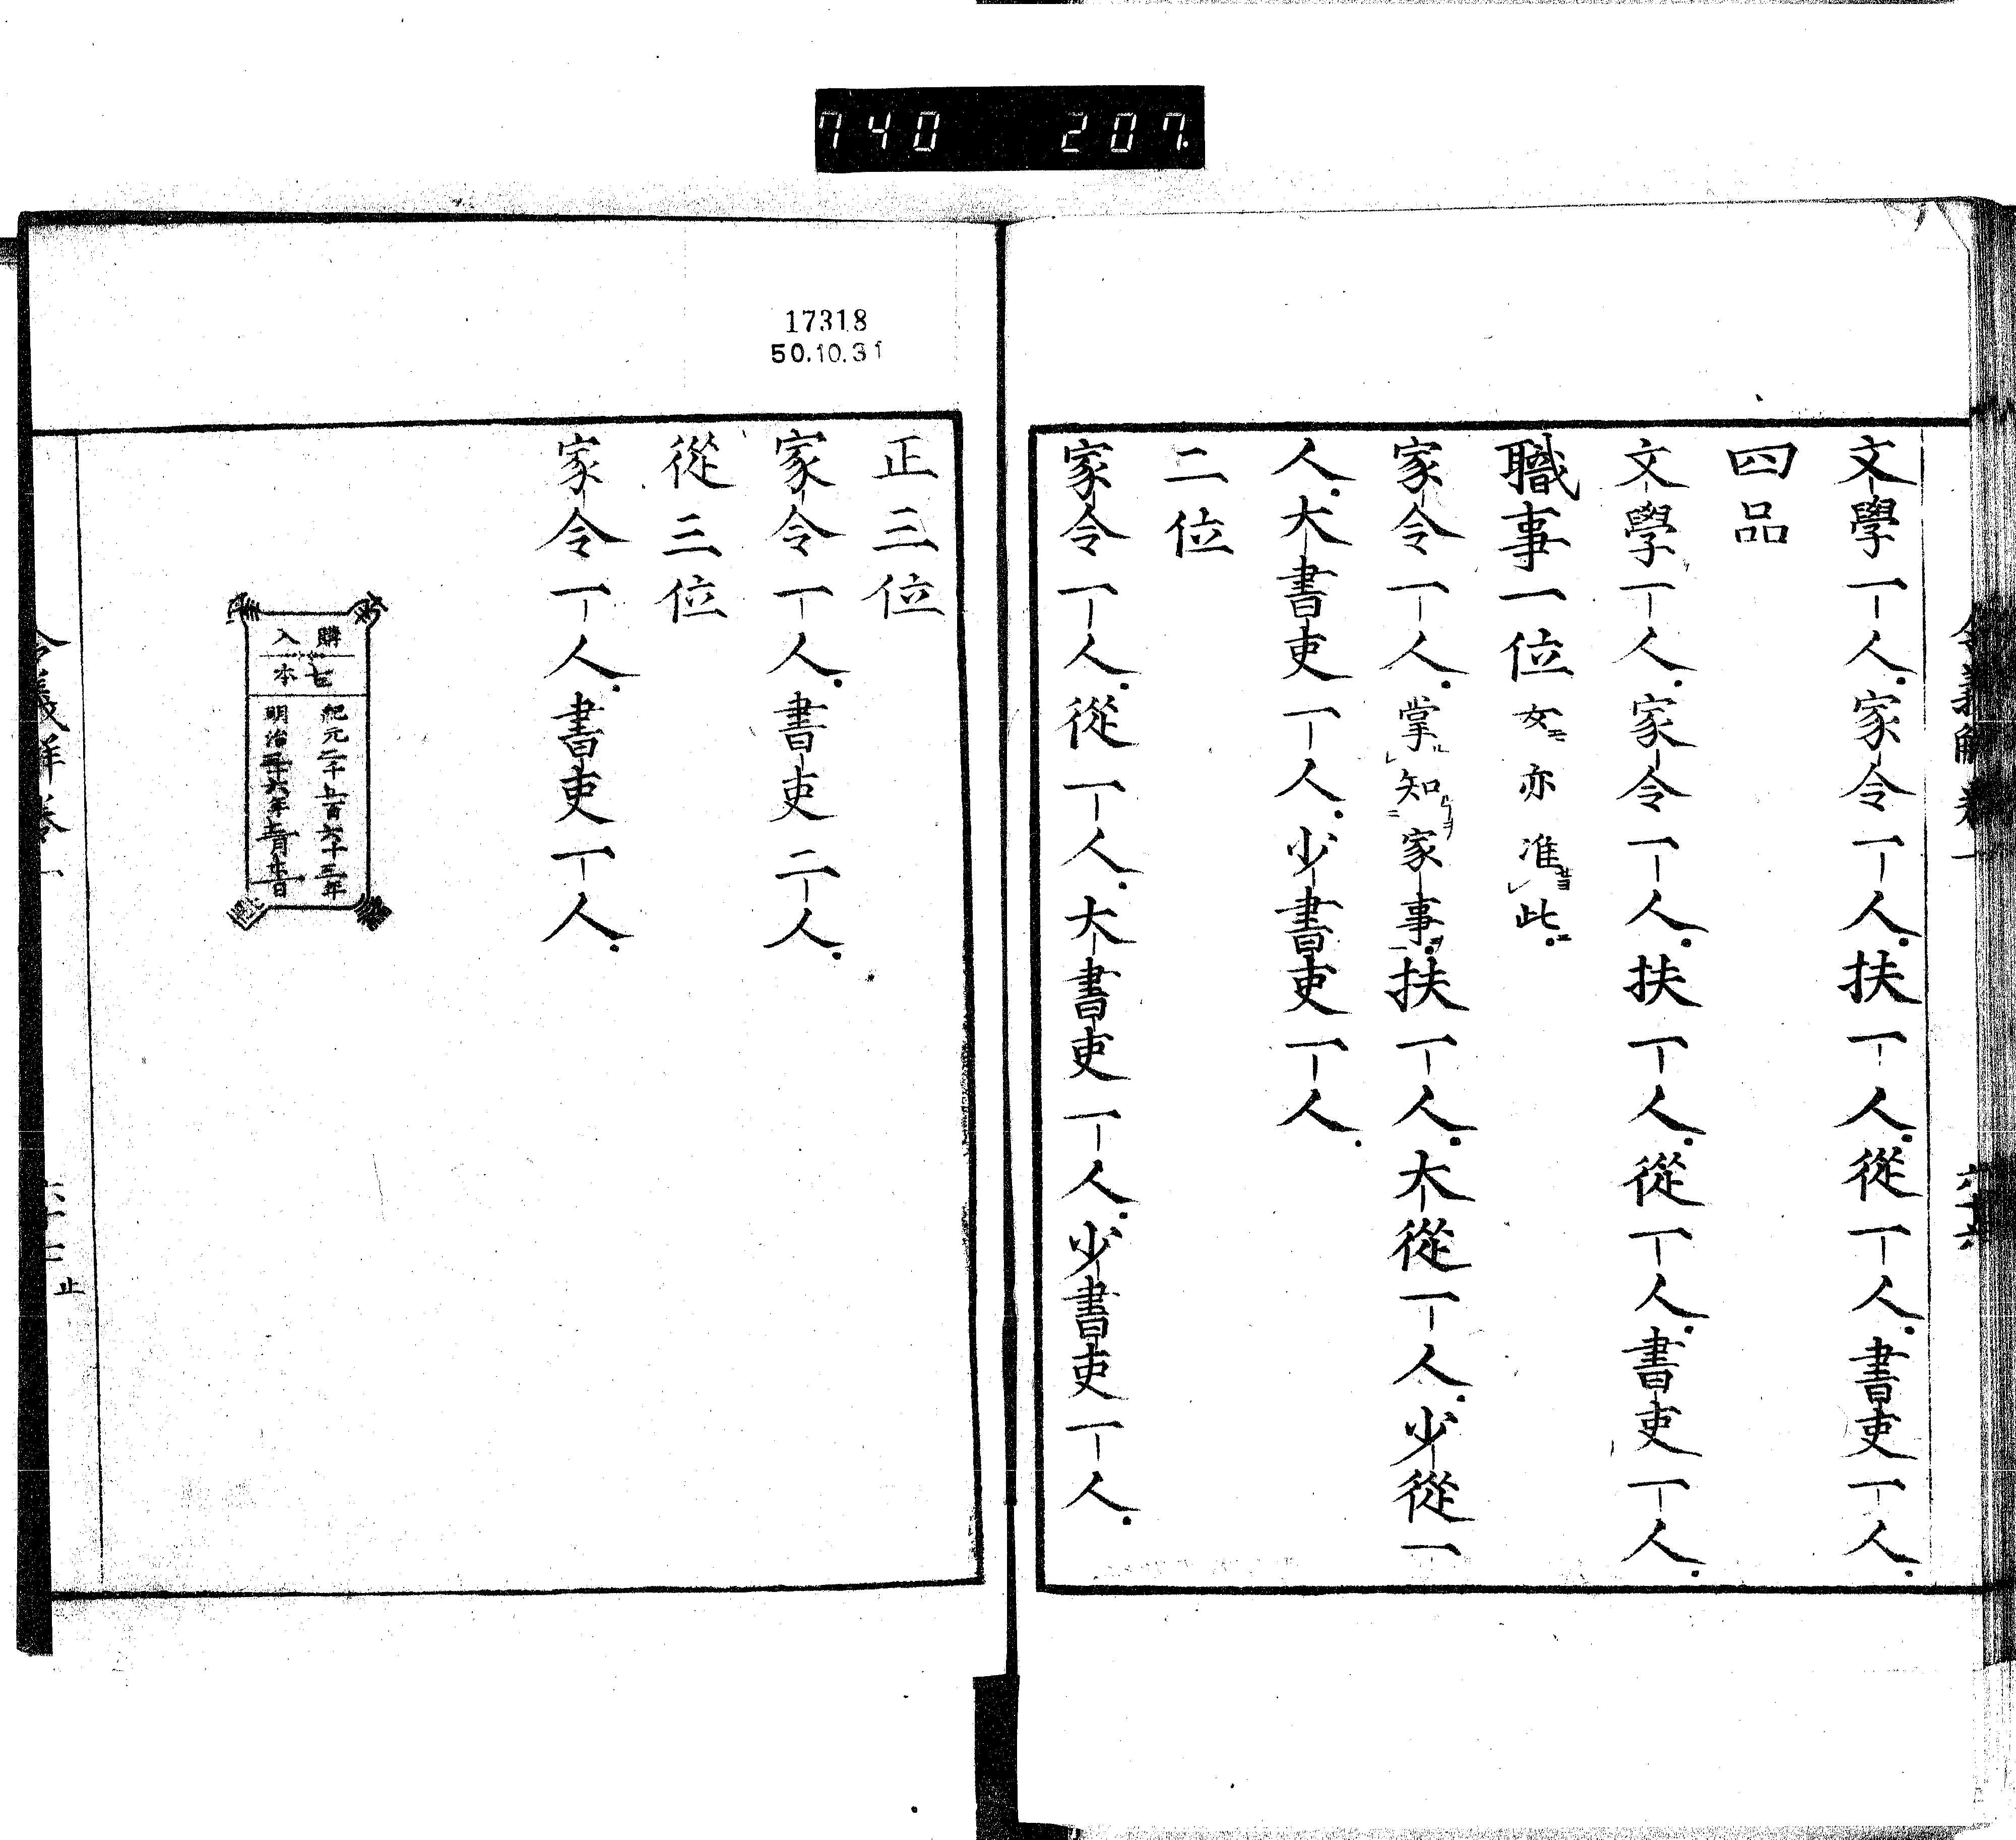 740 207.
令義解卷一 六十六
文學一人家令一人扶一人從一人書吏一人
四品
文學一人家令一人扶一人從一人書吏一人
職事一位女モ亦准此ニ
家令一人掌知家事ヲ扶一人大從一人少從一
人大書吏一人少書吏一人
二位
家令一人從一人大書吏一人少書吏一人
17318
50.10.31
正三位
家令一人書吏二人
從三位
家令一人書吏一人
購入
本
紀元二千五百六十三年
明治三十六年月日
令義解卷一 止